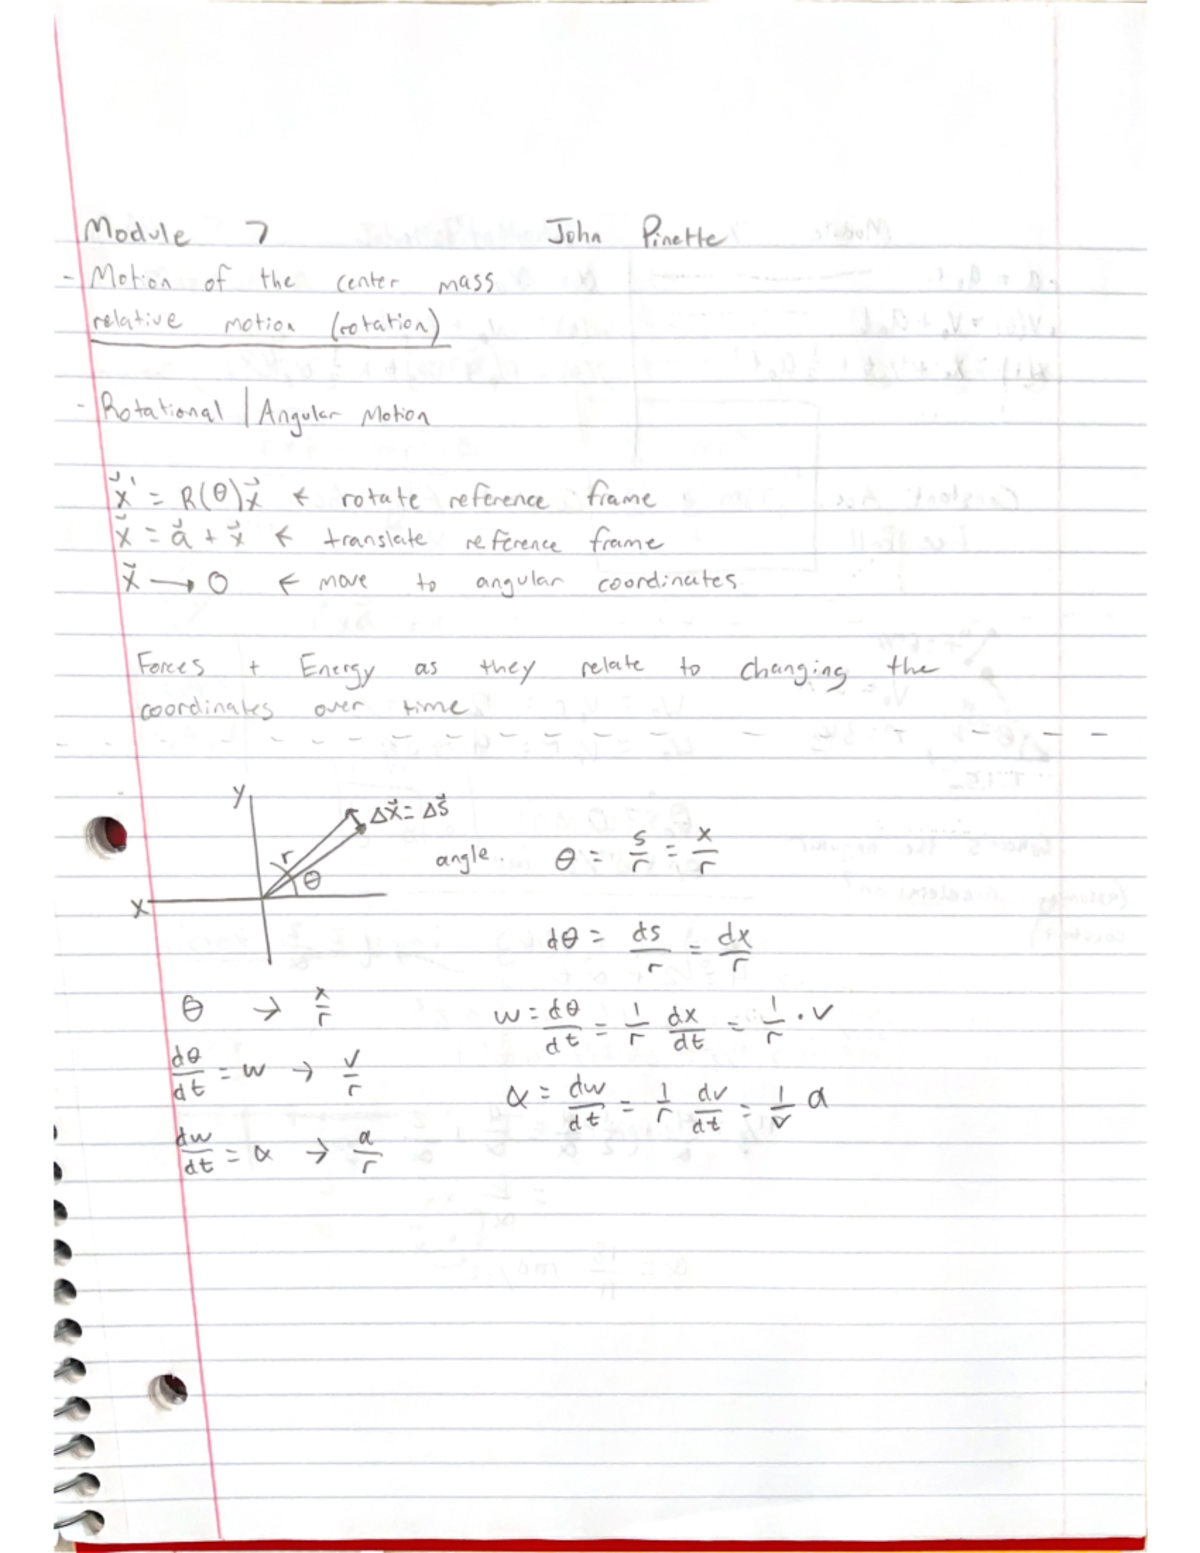 Module 7 John Pinette
- Motion of the center mass
relative motion (rotation)
- Rotational | Angular Motion
x⃗' = R(θ)x⃗ ← rotate reference frame
x⃗ = a⃗ + x⃗ ← translate reference frame
x⃗ → O ← move to angular coordinates
Forces + Energy as they relate to changing the
coordinates over time
y
Δx⃗ = Δs⃗
r
θ
x
angle. θ = s/r = x/r
dθ = ds/r = dx/r
θ → x/r
w = dθ/dt = 1/r dx/dt = 1/r · v
dθ/dt = w → v/r
α = dw/dt = 1/r dv/dt = 1/v a
dw/dt = α → a/r